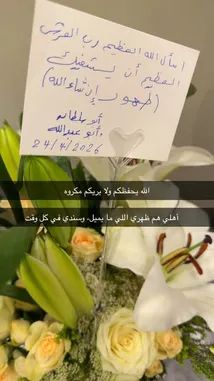 اسأل الله العظيم رب العرش
العظيم أن يشفيك
(طهور إن شاء الله)
أبو سلطان
وأبو عبدالله
24/4/2026
الله يحفظكم ولا يريكم مكروه
أهلي هم ظهري اللي ما يميل، وسندي في كل وقت